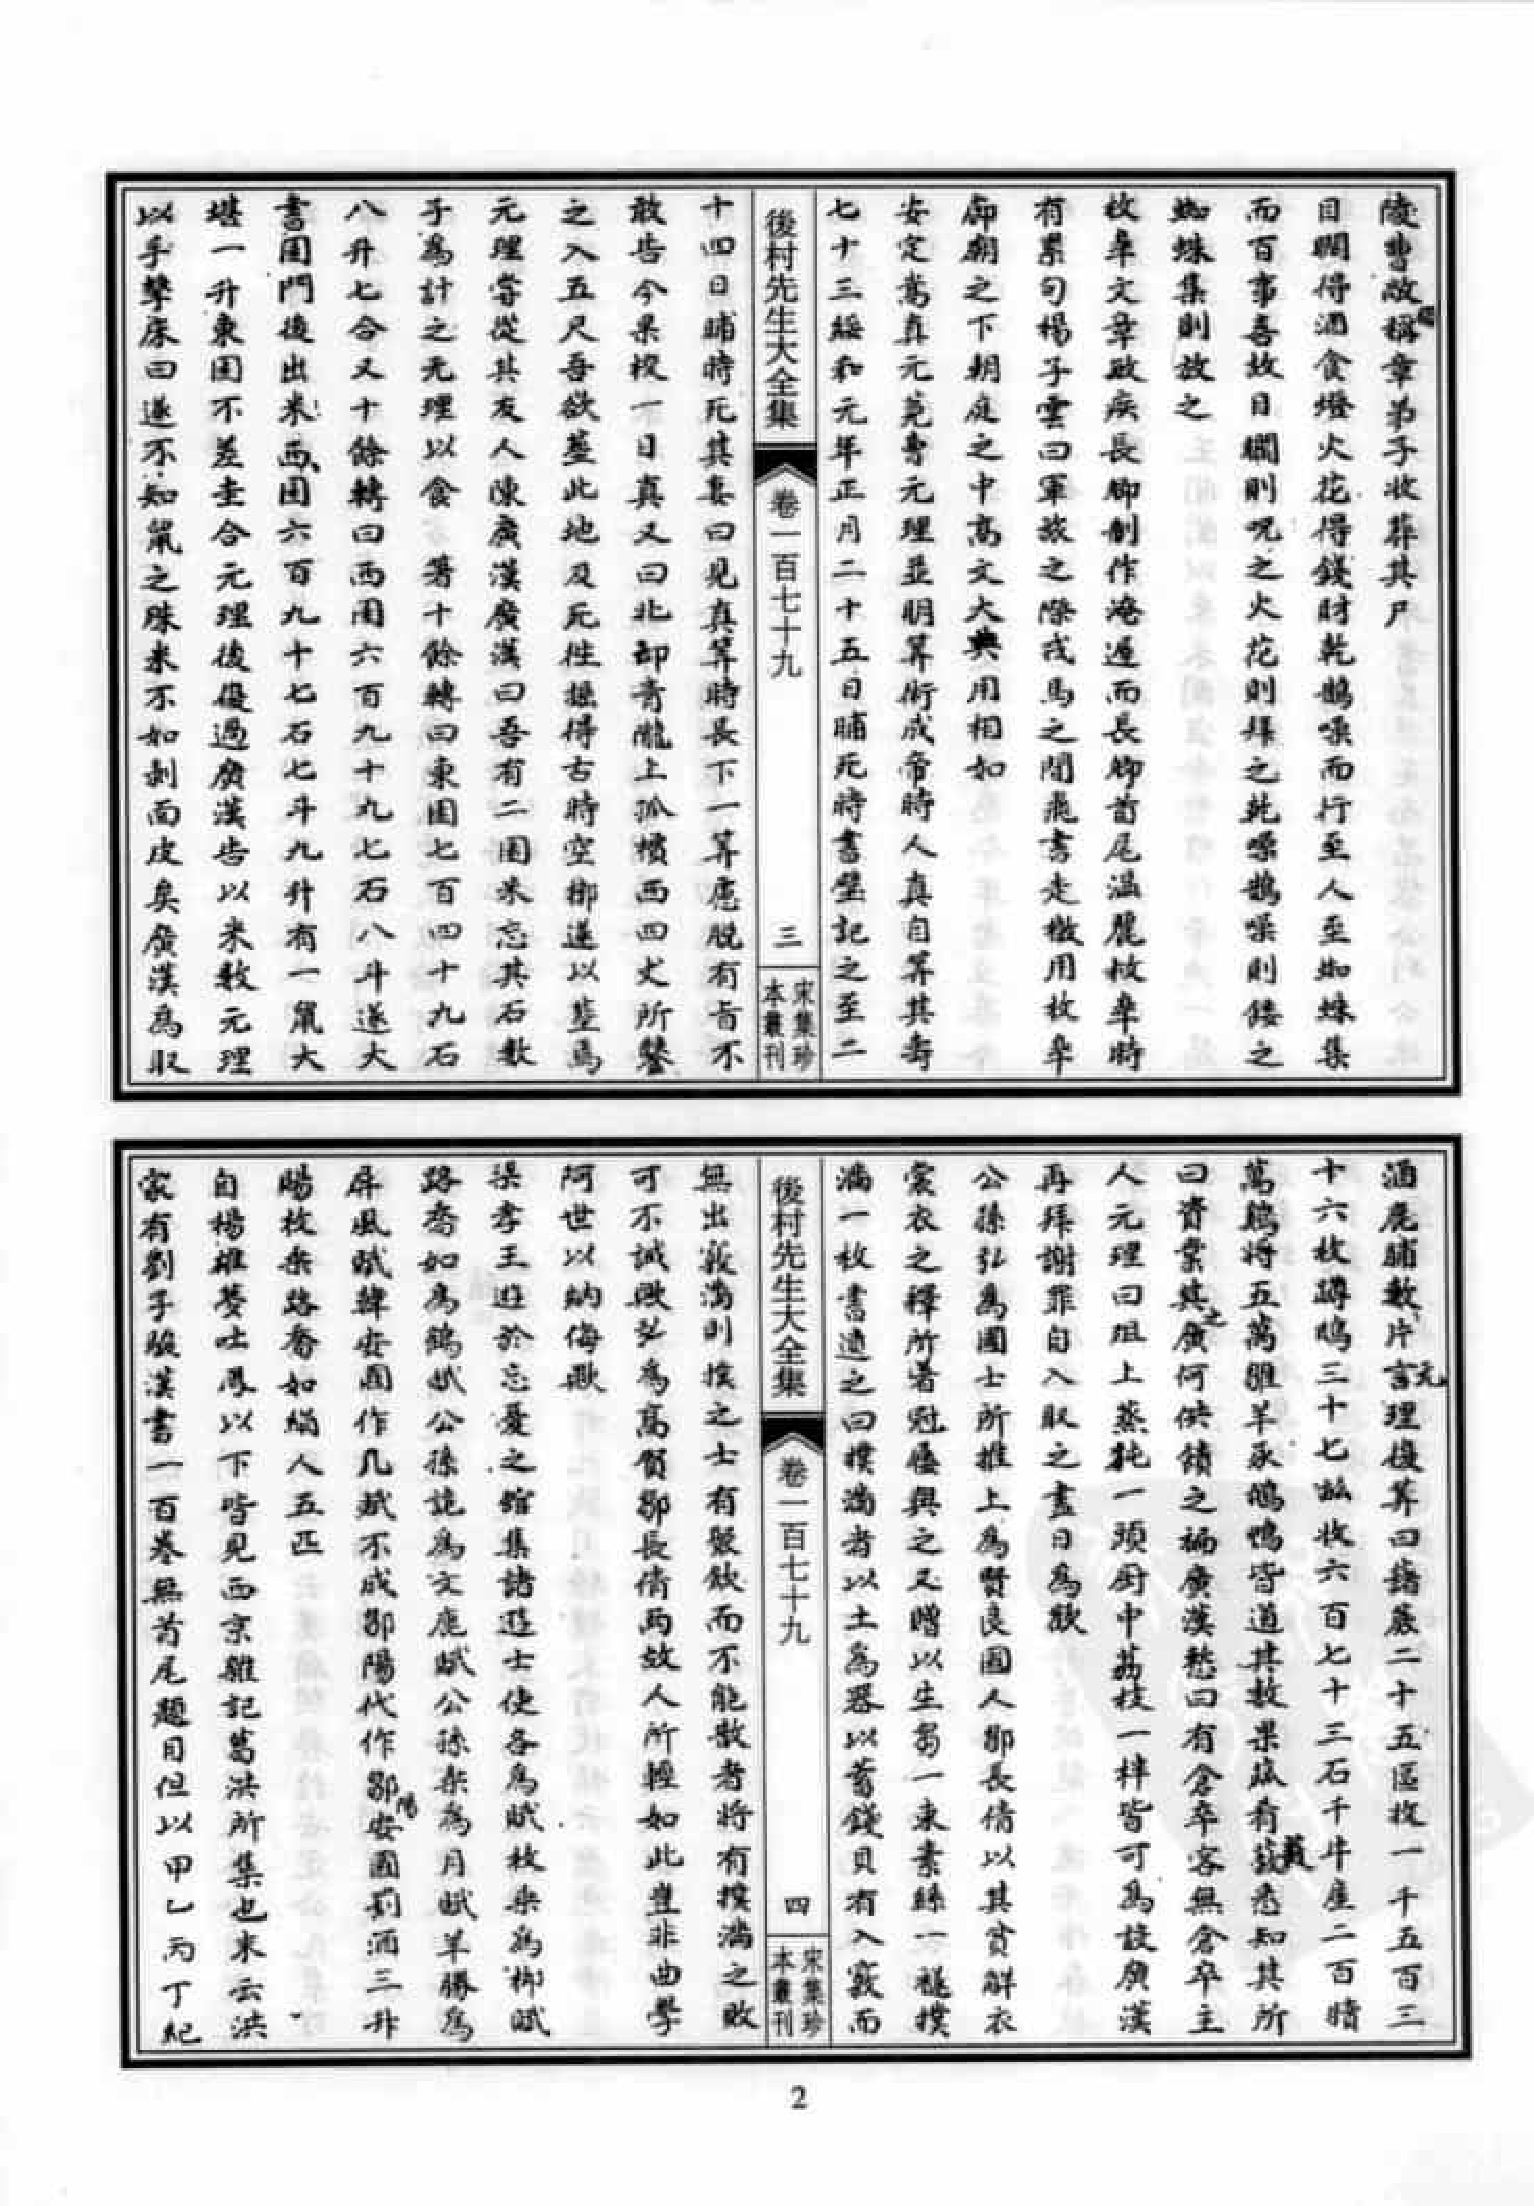 陵曹敞稱章弟子收葬其尸
目瞤得酒食燈火花得錢財乾鵲噪而行至人至蜘蛛集
而百事喜故目瞤則呪之火花則拜之乾噪鵲噪則餧之
蜘蛛集則放之
枚皐文章敏疾長卿制作淹遲而長卿首尾温麗枚皐時
有累句楊子雲曰軍旅之際戎馬之間飛書走檄用枚皐
廊廟之下朝庭之中高文大典用相如
安定嵩真元菟曹元理並明筭術成帝時人真自筭其壽
七十三綏和元年正月二十五日晡死時書壁記之至二
後村先生大全集
卷一百七十九
三
宋集珍
本叢刊
十四日晡時死其妻曰見真筭時長下一筭慮脱有旨不
敢告今果校一日真又曰北邙青隴上孤檟西四丈所鑿
之入五尺吾欲塟此地及死往掘得古時空槨遂以塟焉
元理嘗從其友人陳廣漢廣漢曰吾有二囷米忘其石數
子為計之元理以食筯十餘轉曰東囷七百四十九石
八升七合又十餘轉曰西囷六百九十九七石八斗遂大
書囷門後出米西囷六百九十七石七斗九升有一鼠大
堪一升東囷不差圭合元理後復過廣漢告以米數元理
以手擊床曰遂不知鼠之殊米不如剝面皮矣廣漢為取
酒鹿脯數片元言理復筭曰藷蔗二十五區收一千五百三
十六枚蹲鴟三十七畝收六百七十三石千牛產二百犢
萬鷄將五萬雛羊豕鵝鴨皆道其數果蓏肴蔌悉知其所
曰資業其之廣何供饋之褊廣漢愁曰有倉卒客無倉卒主
人元理曰俎上蒸㹠一頭厨中荔枝一柈皆可為設廣漢
再拜謝罪自入取之盡日為歡
公孫弘為國士所推上為賢良國人鄒長倩以其貧解衣
裳衣之釋所著冠屨與之又贈以生芻一束素絲一襚撲
滿一枚書遺之曰撲滿者以土為器以蓄錢貝有入竅而
後村先生大全集
卷一百七十九
四
宋集珍
本叢刊
無出竅滿則撲之士有聚斂而不能散者將有撲滿之敗
可不誡歟弘為高賀鄒長倩兩故人所輕如此豈非曲學
阿世以納侮歟
梁孝王遊於忘憂之館集諸遊士使各為賦枚乘為柳賦
路喬如為鶴賦公孫詭為文鹿賦公孫乘為月賦羊勝為
屏風賦韓安國作几賦不成鄒陽代作鄒陽安國罰酒三升
賜枚乘路喬如絹人五匹
自楊雄夢吐鳳以下皆見西京雜記葛洪所集也末云洪
家有劉子駿漢書一百卷無首尾題目但以甲乙丙丁紀
2